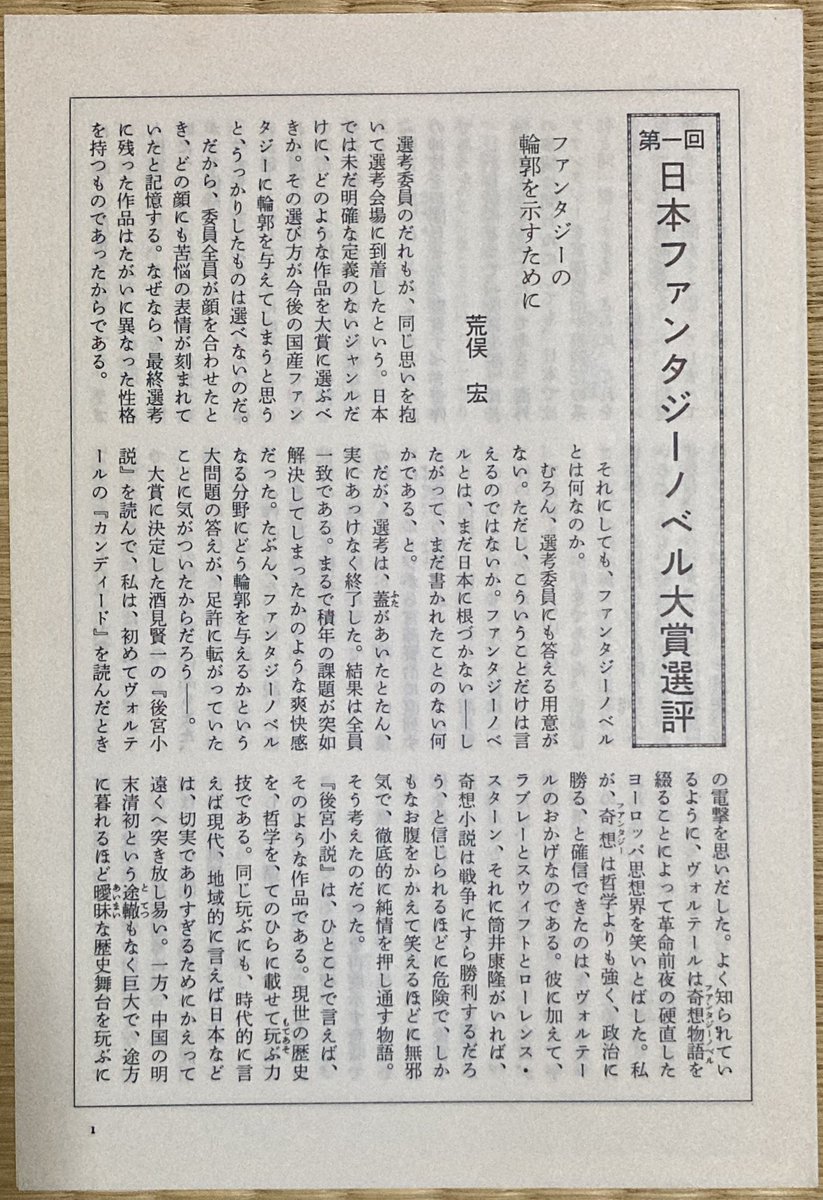 第一回 日本ファンタジーノベル大賞選評
ファンタジーの
輪郭を示すために
荒俣 宏
選考委員のだれもが、同じ思いを抱
いて選考会場に到着したという。日本
では未だ明確な定義のないジャンルだ
けに、どのような作品を大賞に選ぶべ
きか。その選び方が今後の国産ファン
タジーに輪郭を与えてしまうと思う
と、うっかりしたものは選べないのだ。
だから、委員全員が顔を合わせたと
き、どの顔にも苦悩の表情が刻まれて
いたと記憶する。なぜなら、最終選考
に残った作品はたがいに異なった性格
を持つものであったからである。
それにしても、ファンタジーノベル
とは何なのか。
むろん、選考委員にも答える用意が
ない。ただし、こういうことだけは言
えるのではないか。ファンタジーノベ
ルとは、まだ日本に根づかない――し
たがって、まだ書かれたことのない何
かである、と。
だが、選考は、蓋があいたとたん、
ふた
実にあっけなく終了した。結果は全員
一致である。まるで積年の課題が突如
解決してしまったかのような爽快感
だった。たぶん、ファンタジーノベル
なる分野にどう輪郭を与えるかという
大問題の答えが、足許に転がっていた
ことに気がついたからだろう――。
大賞に決定した酒見賢一の『後宮小
説』を読んで、私は、初めてヴォルテ
ールの『カンディード』を読んだとき
の電撃を思いだした。よく知られてい
るように、ヴォルテールは奇想物語を
ファンタジーノベル
綴ることによって革命前夜の硬直した
ヨーロッパ思想界を笑いとばした。私
が、奇想は哲学よりも強く、政治に
ファンタジー
勝る、と確信できたのは、ヴォルテー
ルのおかげなのである。彼に加えて、
ラブレーとスウィフトとローレンス・
スターン、それに筒井康隆がいれば、
奇想小説は戦争にすら勝利するだろ
う、と信じられるほどに危険で、しか
もなお腹をかかえて笑えるほどに無邪
気で、徹底的に純情を押し通す物語。
そう考えたのだった。
『後宮小説』は、ひとことで言えば、
そのような作品である。現世の歴史
を、哲学を、てのひらに載せて玩ぶ力
もてあそ
技である。同じ玩ぶにも、時代的に言
えば現代、地域的に言えば日本など
は、切実でありすぎるためにかえって
遠くへ突き放し易い。一方、中国の明
末清初という途轍もなく巨大で、途方
とてつ
に暮れるほど曖昧な歴史舞台を玩ぶに
あいまい
1